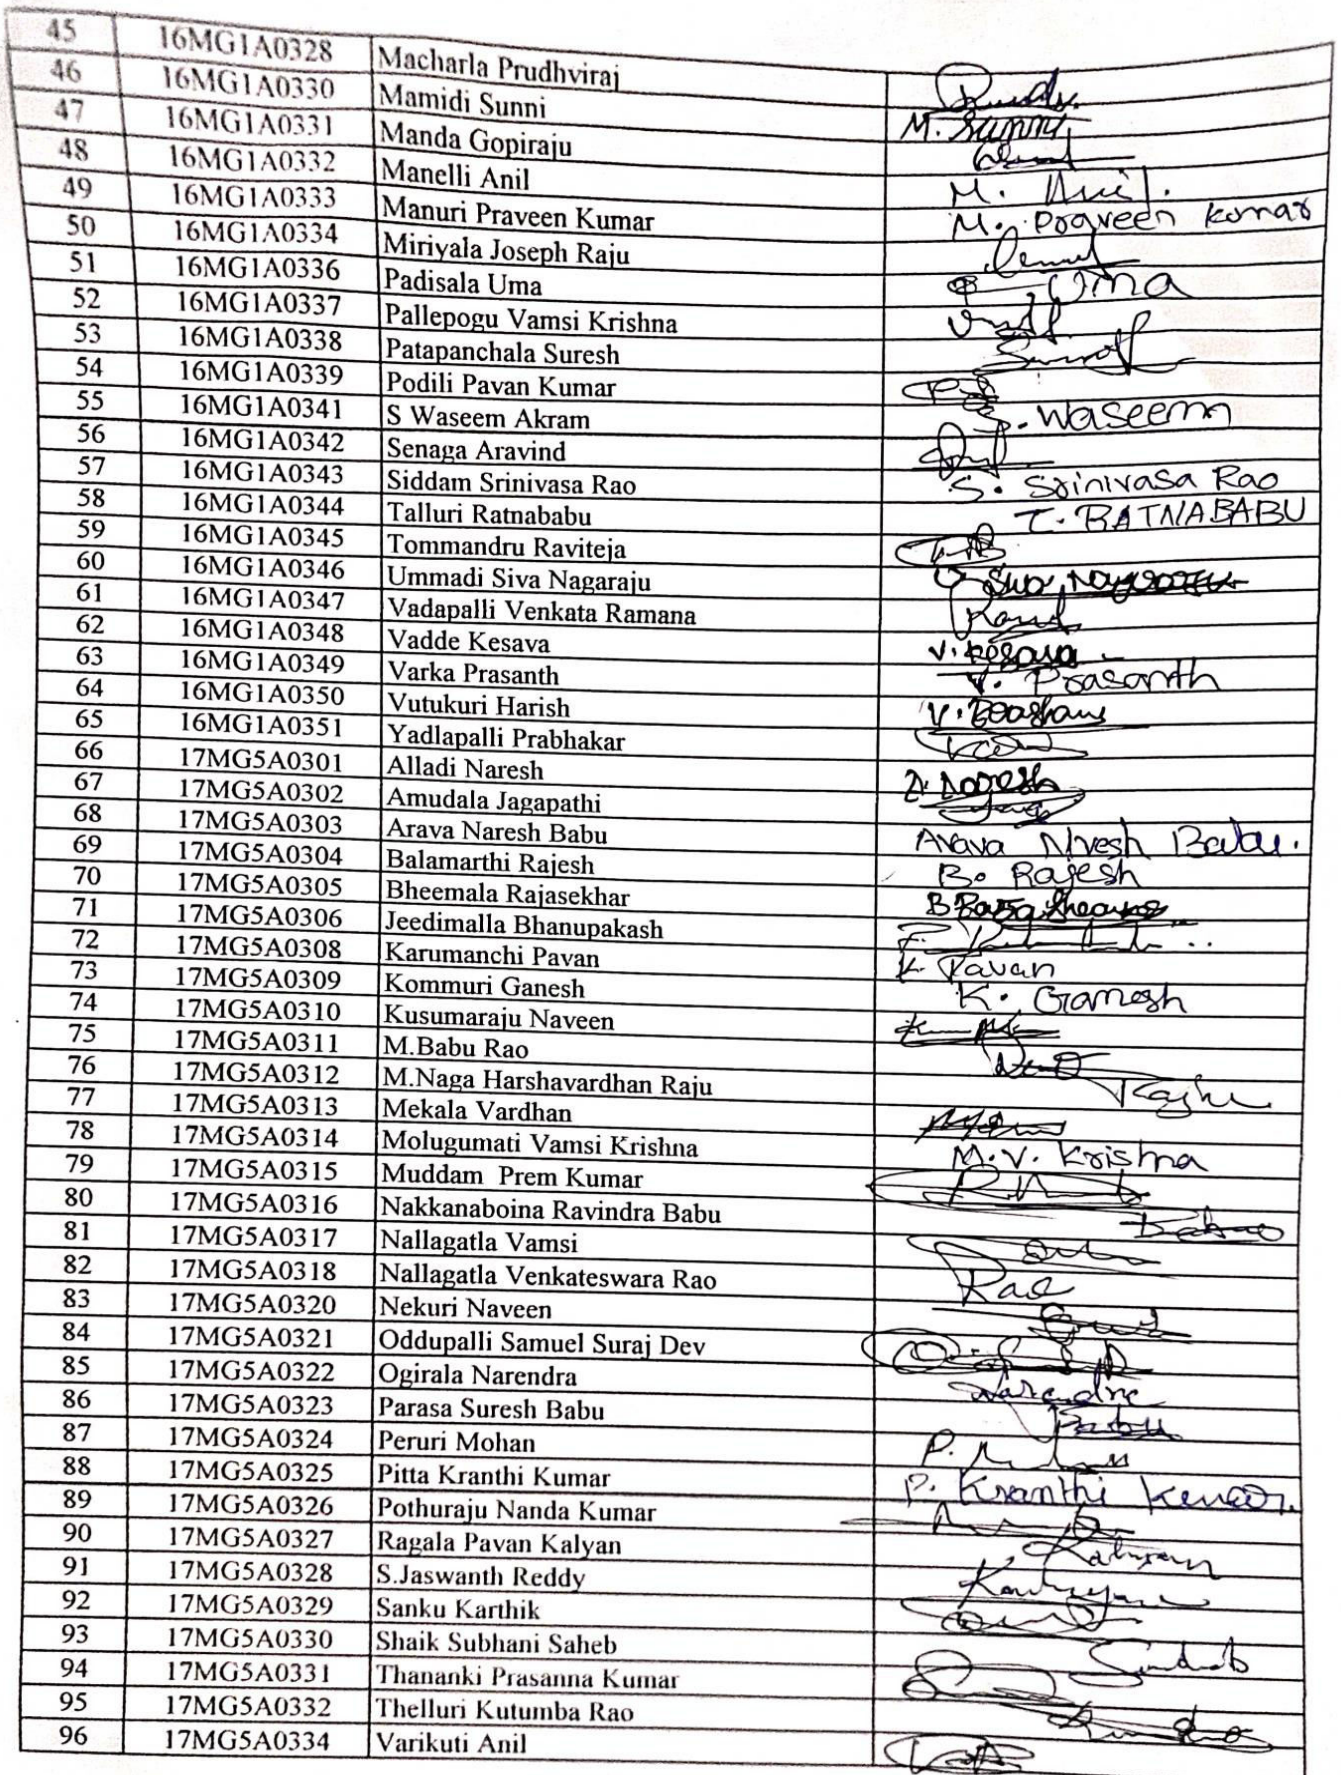 45 16MG1A0328 Macharla Prudhviraj
46 16MG1A0330 Mamidi Sunni M. Sunni
47 16MG1A0331 Manda Gopiraju
48 16MG1A0332 Manelli Anil M. Anil.
49 16MG1A0333 Manuri Praveen Kumar M. Praveen Kumar
50 16MG1A0334 Miriyala Joseph Raju
51 16MG1A0336 Padisala Uma Uma
52 16MG1A0337 Pallepogu Vamsi Krishna
53 16MG1A0338 Patapanchala Suresh
54 16MG1A0339 Podili Pavan Kumar
55 16MG1A0341 S Waseem Akram S. Waseem
56 16MG1A0342 Senaga Aravind
57 16MG1A0343 Siddam Srinivasa Rao S. Srinivasa Rao
58 16MG1A0344 Talluri Ratnababu T. RATNABABU
59 16MG1A0345 Tommandru Raviteja
60 16MG1A0346 Ummadi Siva Nagaraju
61 16MG1A0347 Vadapalli Venkata Ramana
62 16MG1A0348 Vadde Kesava V. Kesava
63 16MG1A0349 Varka Prasanth V. Prasanth
64 16MG1A0350 Vutukuri Harish
65 16MG1A0351 Yadlapalli Prabhakar
66 17MG5A0301 Alladi Naresh A. Naresh
67 17MG5A0302 Amudala Jagapathi
68 17MG5A0303 Arava Naresh Babu Arava Babu.
69 17MG5A0304 Balamarthi Rajesh B. Rajesh
70 17MG5A0305 Bheemala Rajasekhar
71 17MG5A0306 Jeedimalla Bhanupakash
72 17MG5A0308 Karumanchi Pavan K. Pavan
73 17MG5A0309 Kommuri Ganesh K. Ganesh
74 17MG5A0310 Kusumaraju Naveen
75 17MG5A0311 M.Babu Rao
76 17MG5A0312 M.Naga Harshavardhan Raju
77 17MG5A0313 Mekala Vardhan
78 17MG5A0314 Molugumati Vamsi Krishna M.V. Krishna
79 17MG5A0315 Muddam Prem Kumar
80 17MG5A0316 Nakkanaboina Ravindra Babu
81 17MG5A0317 Nallagatla Vamsi
82 17MG5A0318 Nallagatla Venkateswara Rao Rao
83 17MG5A0320 Nekuri Naveen
84 17MG5A0321 Oddupalli Samuel Suraj Dev
85 17MG5A0322 Ogirala Narendra Narendra
86 17MG5A0323 Parasa Suresh Babu Babu
87 17MG5A0324 Peruri Mohan
88 17MG5A0325 Pitta Kranthi Kumar P. Kranthi Kumar.
89 17MG5A0326 Pothuraju Nanda Kumar
90 17MG5A0327 Ragala Pavan Kalyan Kalyan
91 17MG5A0328 S.Jaswanth Reddy
92 17MG5A0329 Sanku Karthik
93 17MG5A0330 Shaik Subhani Saheb
94 17MG5A0331 Thananki Prasanna Kumar
95 17MG5A0332 Thelluri Kutumba Rao
96 17MG5A0334 Varikuti Anil